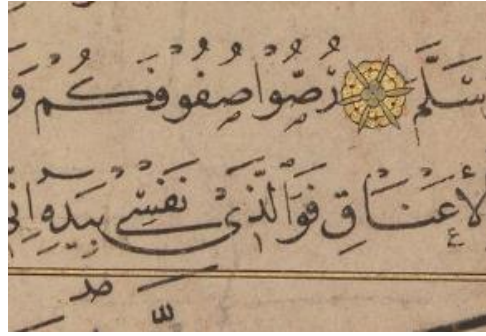 وَسَلَّمَ رُصُّوا صُفُوفَكُمْ وَ
الْأَعْنَاقِ فَوَالَّذِي نَفْسِي بِيَدِهِ إِنِّي